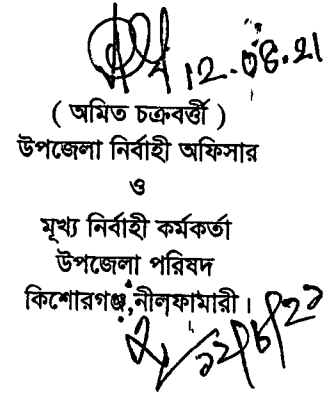 12.08.21
( অমিত চক্রবর্ত্তী )
উপজেলা নির্বাহী অফিসার
ও
মূখ্য নির্বাহী কর্মকর্তা
উপজেলা পরিষদ
কিশোরগঞ্জ,নীলফামারী।
১২/৮/২১